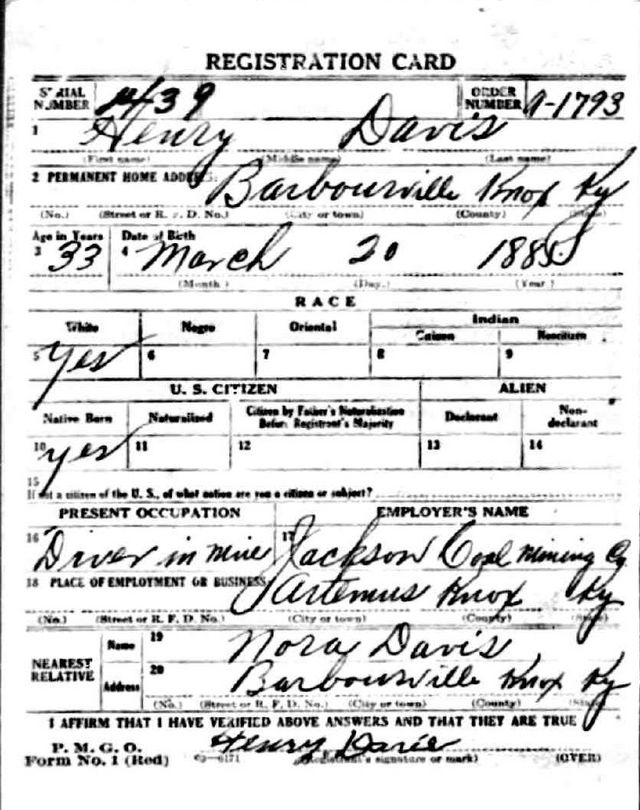 REGISTRATION CARD
SERIAL NUMBER 439 ORDER NUMBER A-1793
1 Henry Davis
(First name) (Middle name) (Last name)
2 PERMANENT HOME ADDRESS: Barbourville Knox Ky
(No.) (Street or R. F. D. No.) (City or town) (County) (State)
Age in Years Date of Birth
3 33 4 March 20 1885
(Month.) (Day.) (Year)
RACE
White Negro Oriental Indian
Citizen Noncitizen
5 yes 6 7 8 9
U. S. CITIZEN ALIEN
Native Born Naturalized Citizen by Father's Naturalization Before Registrant's Majority Declarant Non-declarant
10 yes 11 12 13 14
15
If not a citizen of the U. S., of what nation are you a citizen or subject?
PRESENT OCCUPATION EMPLOYER'S NAME
16 Driver in mine 17 Jackson Coal Mining Co
18 PLACE OF EMPLOYMENT OR BUSINESS: Artemus Knox Ky
(No.) (Street or R. F. D. No.) (City or town) (County) (State)
NEAREST RELATIVE Name 19 Nora Davis
Address 20 Barbourville Knox Ky
(No.) (Street or R. F. D. No.) (City or town) (County) (State)
I AFFIRM THAT I HAVE VERIFIED ABOVE ANSWERS AND THAT THEY ARE TRUE
P. M. G. O.
Form No. 1 (Red) Henry Davis
(Registrant's signature or mark) (OVER)